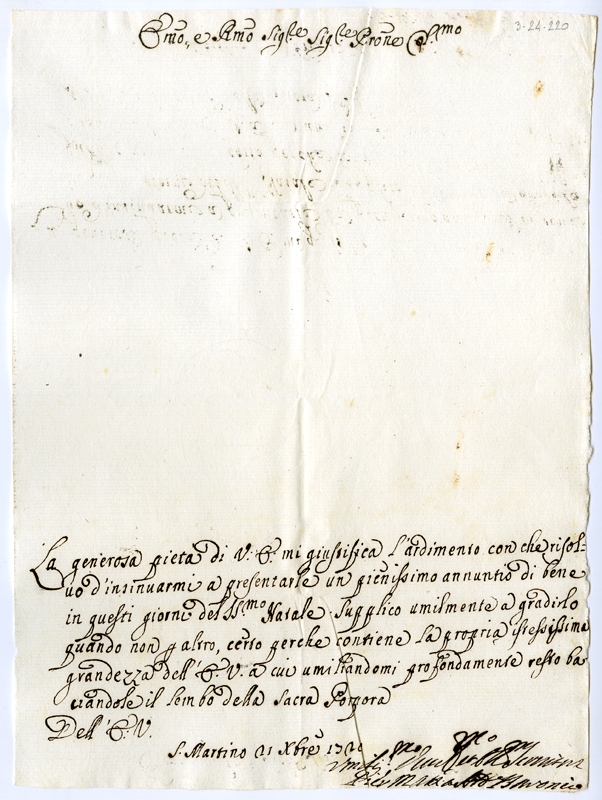 3-24-220
Em̃o, e Rm̃o Sig.re Sig.re Prone Col.mo
La generosa pietà di V. E. mi giustifica l'ardimento con che risol-
uo d'insinuarmi a presentarle un pienissimo annuntio di bene
in questi giorni del SS.mo Natale. Supplico umilmente a gradirlo
quando non p altro, certo perche contiene la propria istessissima
grandezza dell'E. V. a cui umiliandomi profondamente resto ba
ciandole il lembo della Sacra Porpora
Dell'E. V.
S. Martino 21 Xbre
Umil.mo